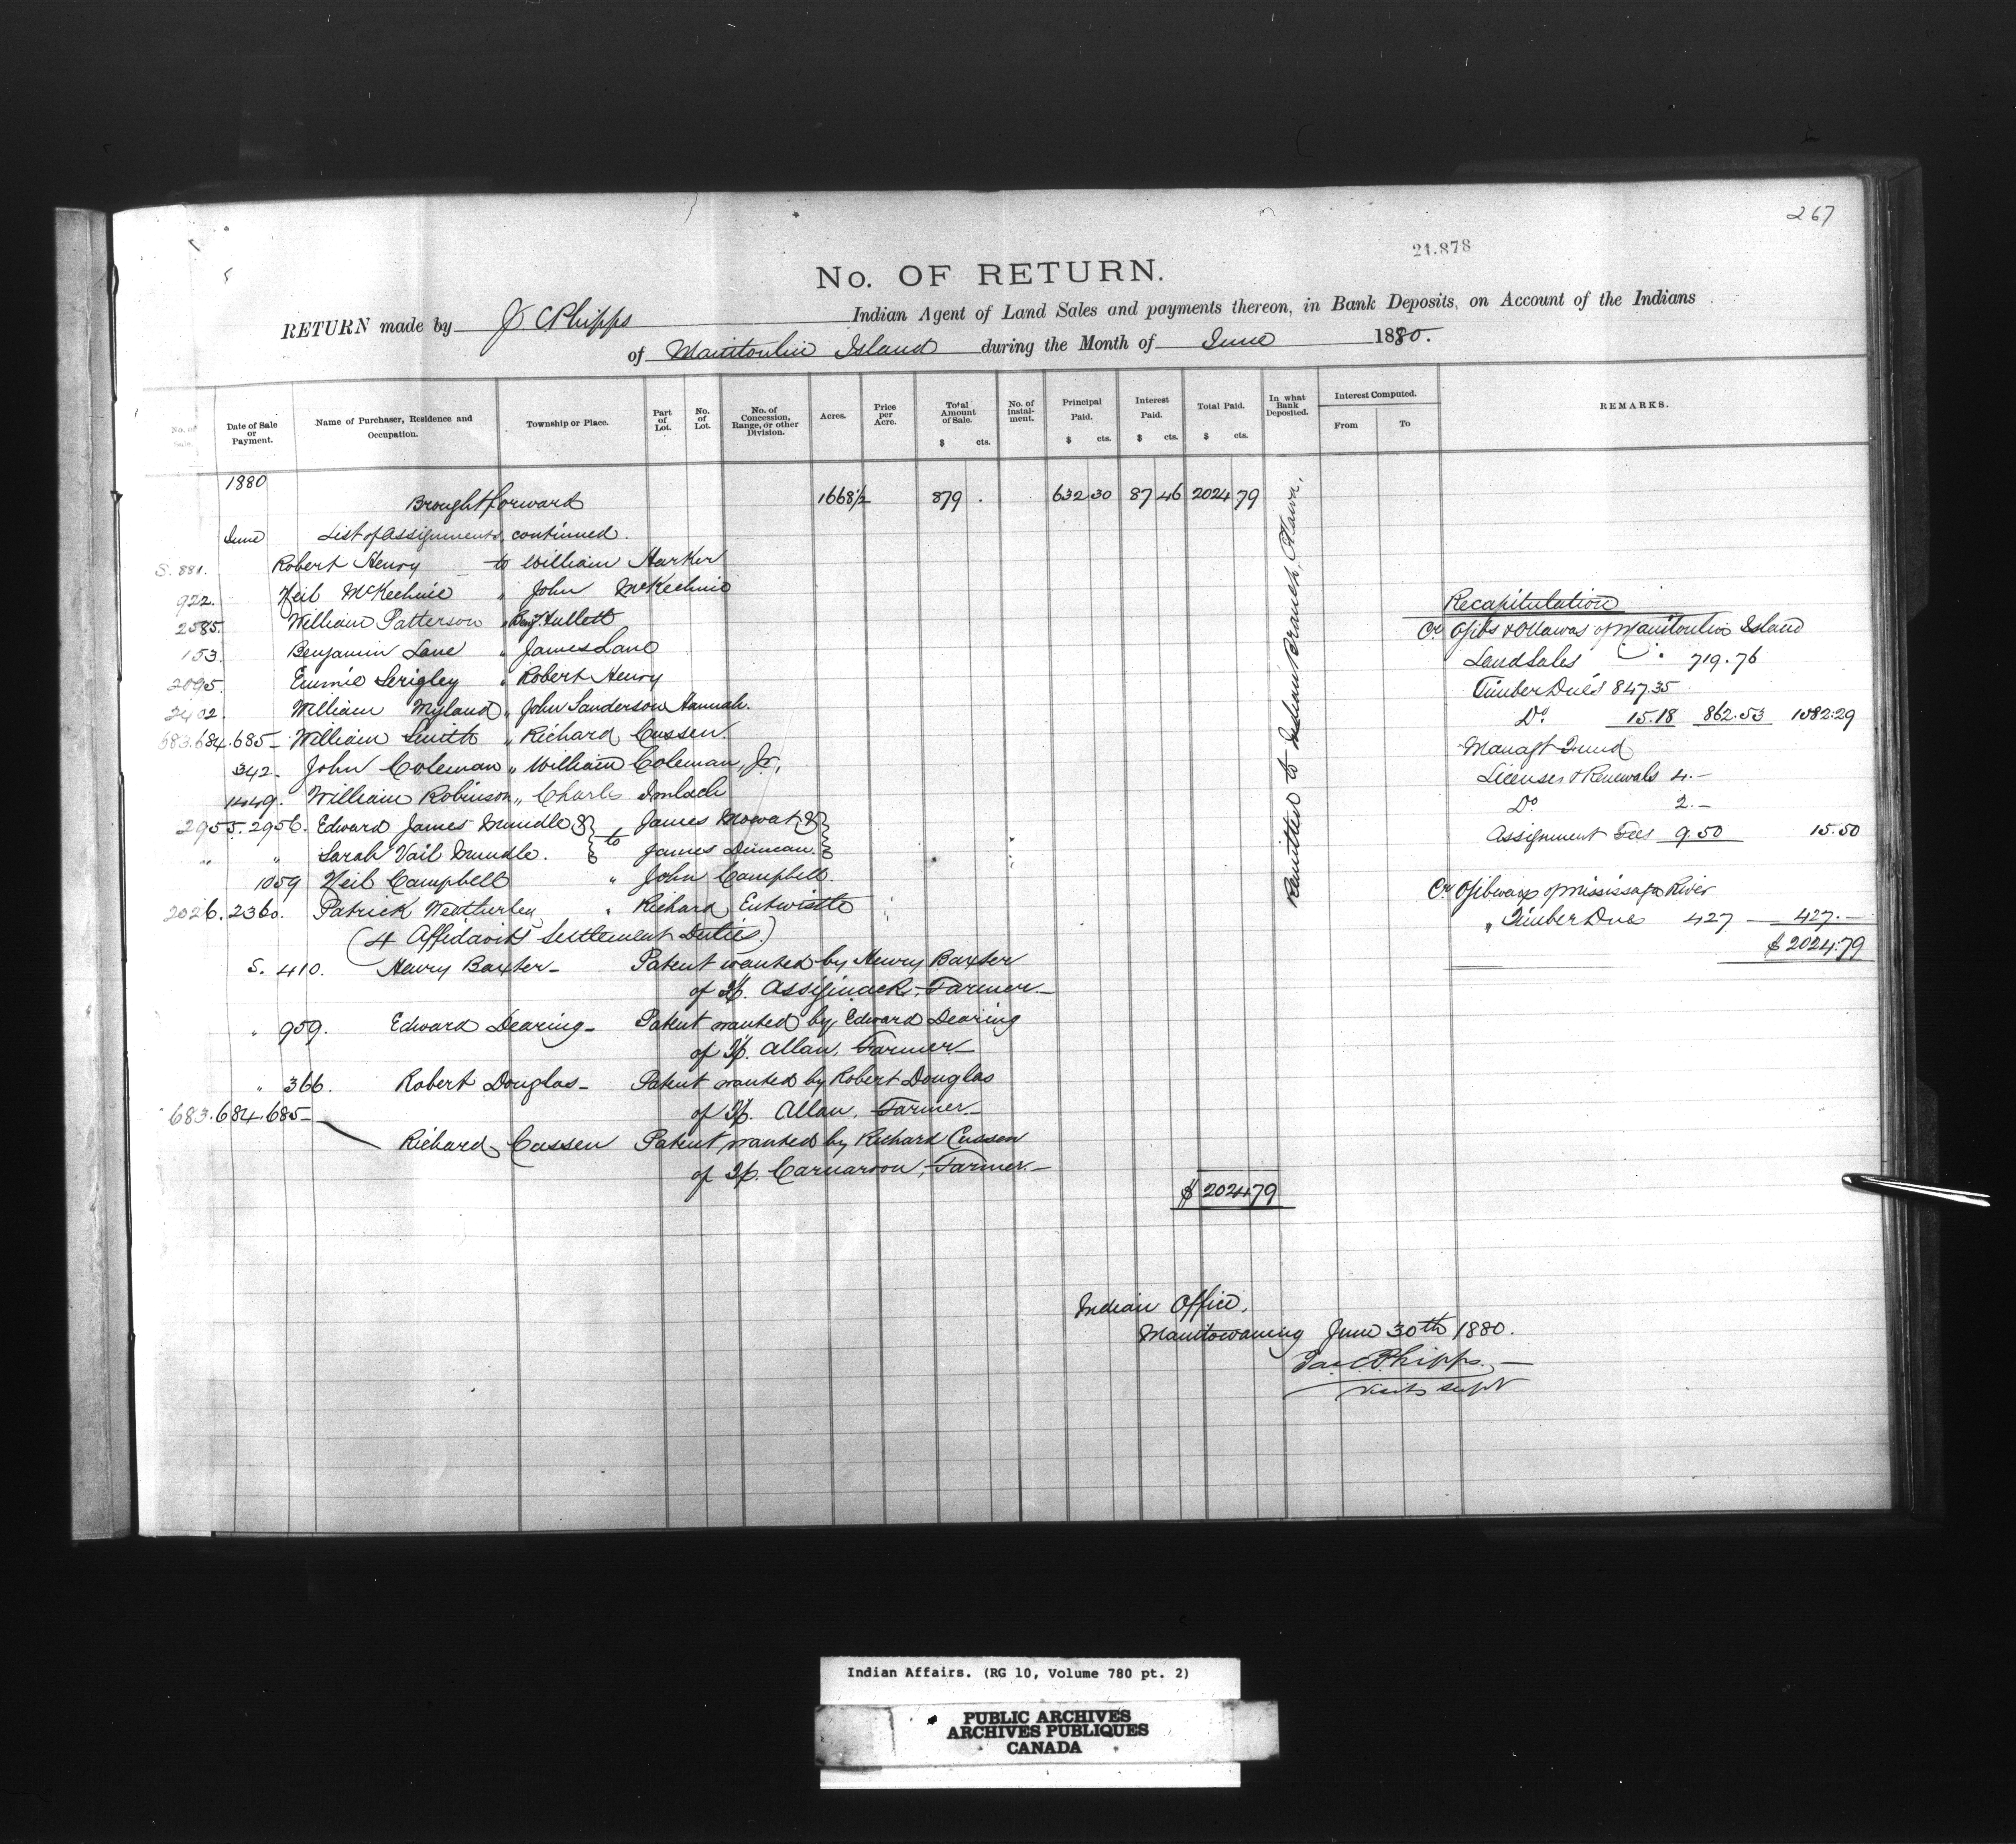 267
21.878
No. OF RETURN.
RETURN made by J C Phipps Indian Agent of Land Sales and payments thereon, in Bank Deposits, on Account of the Indians
of Manitoulin Island during the Month of June 1880.
No. of Sale.
Date of Sale or Payment.
Name of Purchaser, Residence and Occupation.
Township or Place.
Part of Lot.
No. of Lot.
No. of Concession, Range, or other Division.
Acres.
Price per Acre.
Total Amount of Sale. $ cts.
No. of instal-ment.
Principal Paid. $ cts.
Interest Paid. $ cts.
Total Paid. $ cts.
In what Bank Deposited.
Interest Computed. From To
REMARKS.
1880
Brought forward 1668 1/2 879 . 632 30 87 46 2024 79
June List of assignments continued.
S. 881. Robert Henry to William Harker
922. Neil McKechnie " John McKechnie
2585. William Patterson " Benj. Hullett
153. Benjamin Lane " James Lane
2095. Eunnie Serigley " Robert Henry
2402. William Myland " John Sanderson Hannah.
683.684.685 - William Smith " Richard Cussen.
342. John Coleman " William Coleman, Jr,
1449. William Robinson " Charles Imlach
2955. 2956. Edward James Mundle & } to James Mowat & }
" " Sarah Vail Mundle. } James Duncan. }
1059 Neil Campbell " John Campbell.
2026. 2360. Patrick Weatherley " Richard Entwistle
(4 Affidavits Settlement Duties.)
S. 410. Henry Baxter - Patent wanted by Henry Baxter
of Tp. Assiginack, Farmer -
" 959. Edward Dearing - Patent wanted by Edward Dearing
of Tp. Allan, Farmer -
" 366. Robert Douglas - Patent wanted by Robert Douglas
683.684.685 - of Tp. Allan, Farmer -
Richard Cussen Patent wanted by Richard Cussen
of Tp. Carnarvon, Farmer. -
$ 2024 79
Remitted to Indian Branch, Ottawa.
Recapitulation
Cr. Ojibs & Ottawas of Manitoulin Island
Land Sales 719.76
Timber Dues 847.35
Do. 15.18 862.53 1582.29
Managt Fund
Licenses & Renewals 4. -
Do 2. -
Assignment Fees 9.50 15.50
Cr. Ojibways of Mississaga River
" Timber Dues 427 - 427. -
$ 2024.79
Indian Office,
Manitowaning June 30th 1880.
Jas C. Phipps. -
Visitg Supt
Indian Affairs. (RG 10, Volume 780 pt. 2)
PUBLIC ARCHIVES
ARCHIVES PUBLIQUES
CANADA